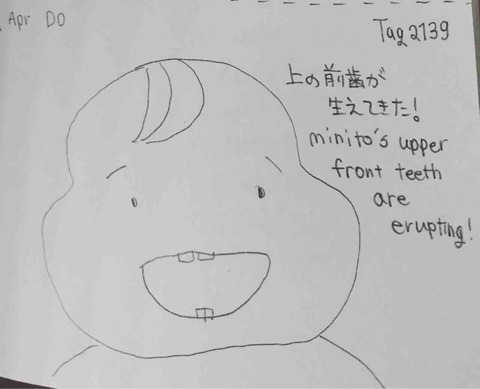 Apr DO
Tag 2139
上の前歯が
生えてきた!
minito's upper
front teeth
are
erupting!